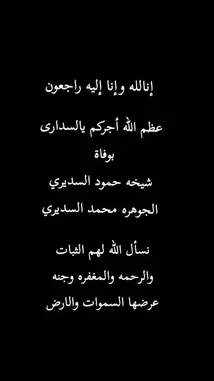 إنالله وإنا إليه راجعون
عظم الله أجركم يالسدارى
بوفاة
شيخه حمود السديري
الجوهره محمد السديري
نسأل الله لهم الثبات
والرحمه والمغفره وجنه
عرضها السموات والارض